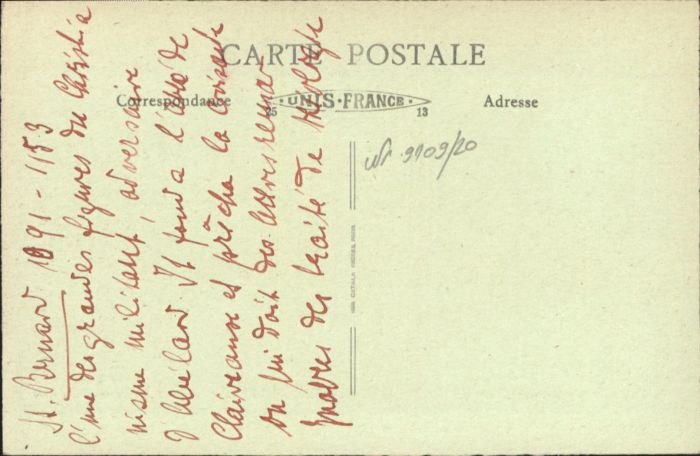 CARTE POSTALE
Correspondance
UNIS-FRANCE
25
13
Adresse
St. Bernard 1091-1153
l'une des grandes figures du Christia
nisme militant, adversaire
d'Abélard. Il fonda l'abbé de
Clairvaux et prêcha la croisade
on lui doit des lettres remar
quables des traité de théologie
Nr 9109/20